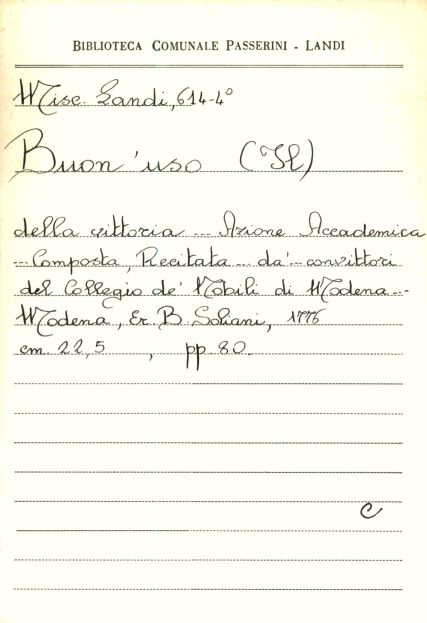 BIBLIOTECA COMUNALE PASSERINI - LANDI
Misc. Landi, 614-4°
Buon'uso (Il)
della vittoria ... Azione Accademica
... Composta, Recitata ... da' ... convittori
del Collegio de' Nobili di Modena ...
Modena, Er. B. Soliani, 1776
cm. 22,5 , pp. 80.
C